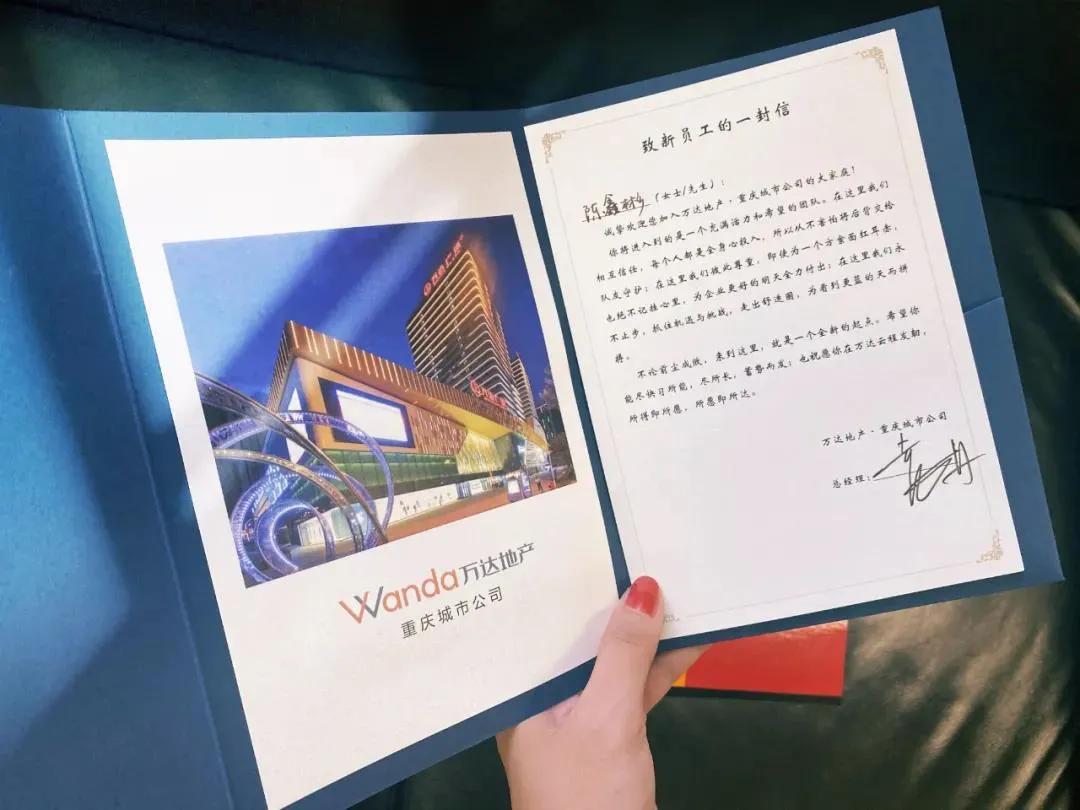 万达广场
Wanda万达地产
重庆城市公司
致新员工的一封信
陈鑫彬（女士/先生）：
诚挚欢迎您加入万达地产·重庆城市公司的大家庭！
你将进入到的是一个充满活力和希望的团队。在这里我们
相互信任，每个人都是全身心投入，所以从不害怕将后背交给
队友守护；在这里我们彼此尊重，即使为一个方案面红耳赤，
也绝不记挂心里，为企业更好的明天全力付出；在这里我们永
不止步，抓住机遇与挑战，走出舒适圈，为看到更蓝的天而拼
搏。
不论前尘成败，来到这里，就是一个全新的起点。希望你
能尽快习所能，尽所长，蓄势而发；也祝愿你在万达云程发轫，
所得即所愿，所愿即所达。
万达地产·重庆城市公司
总经理：